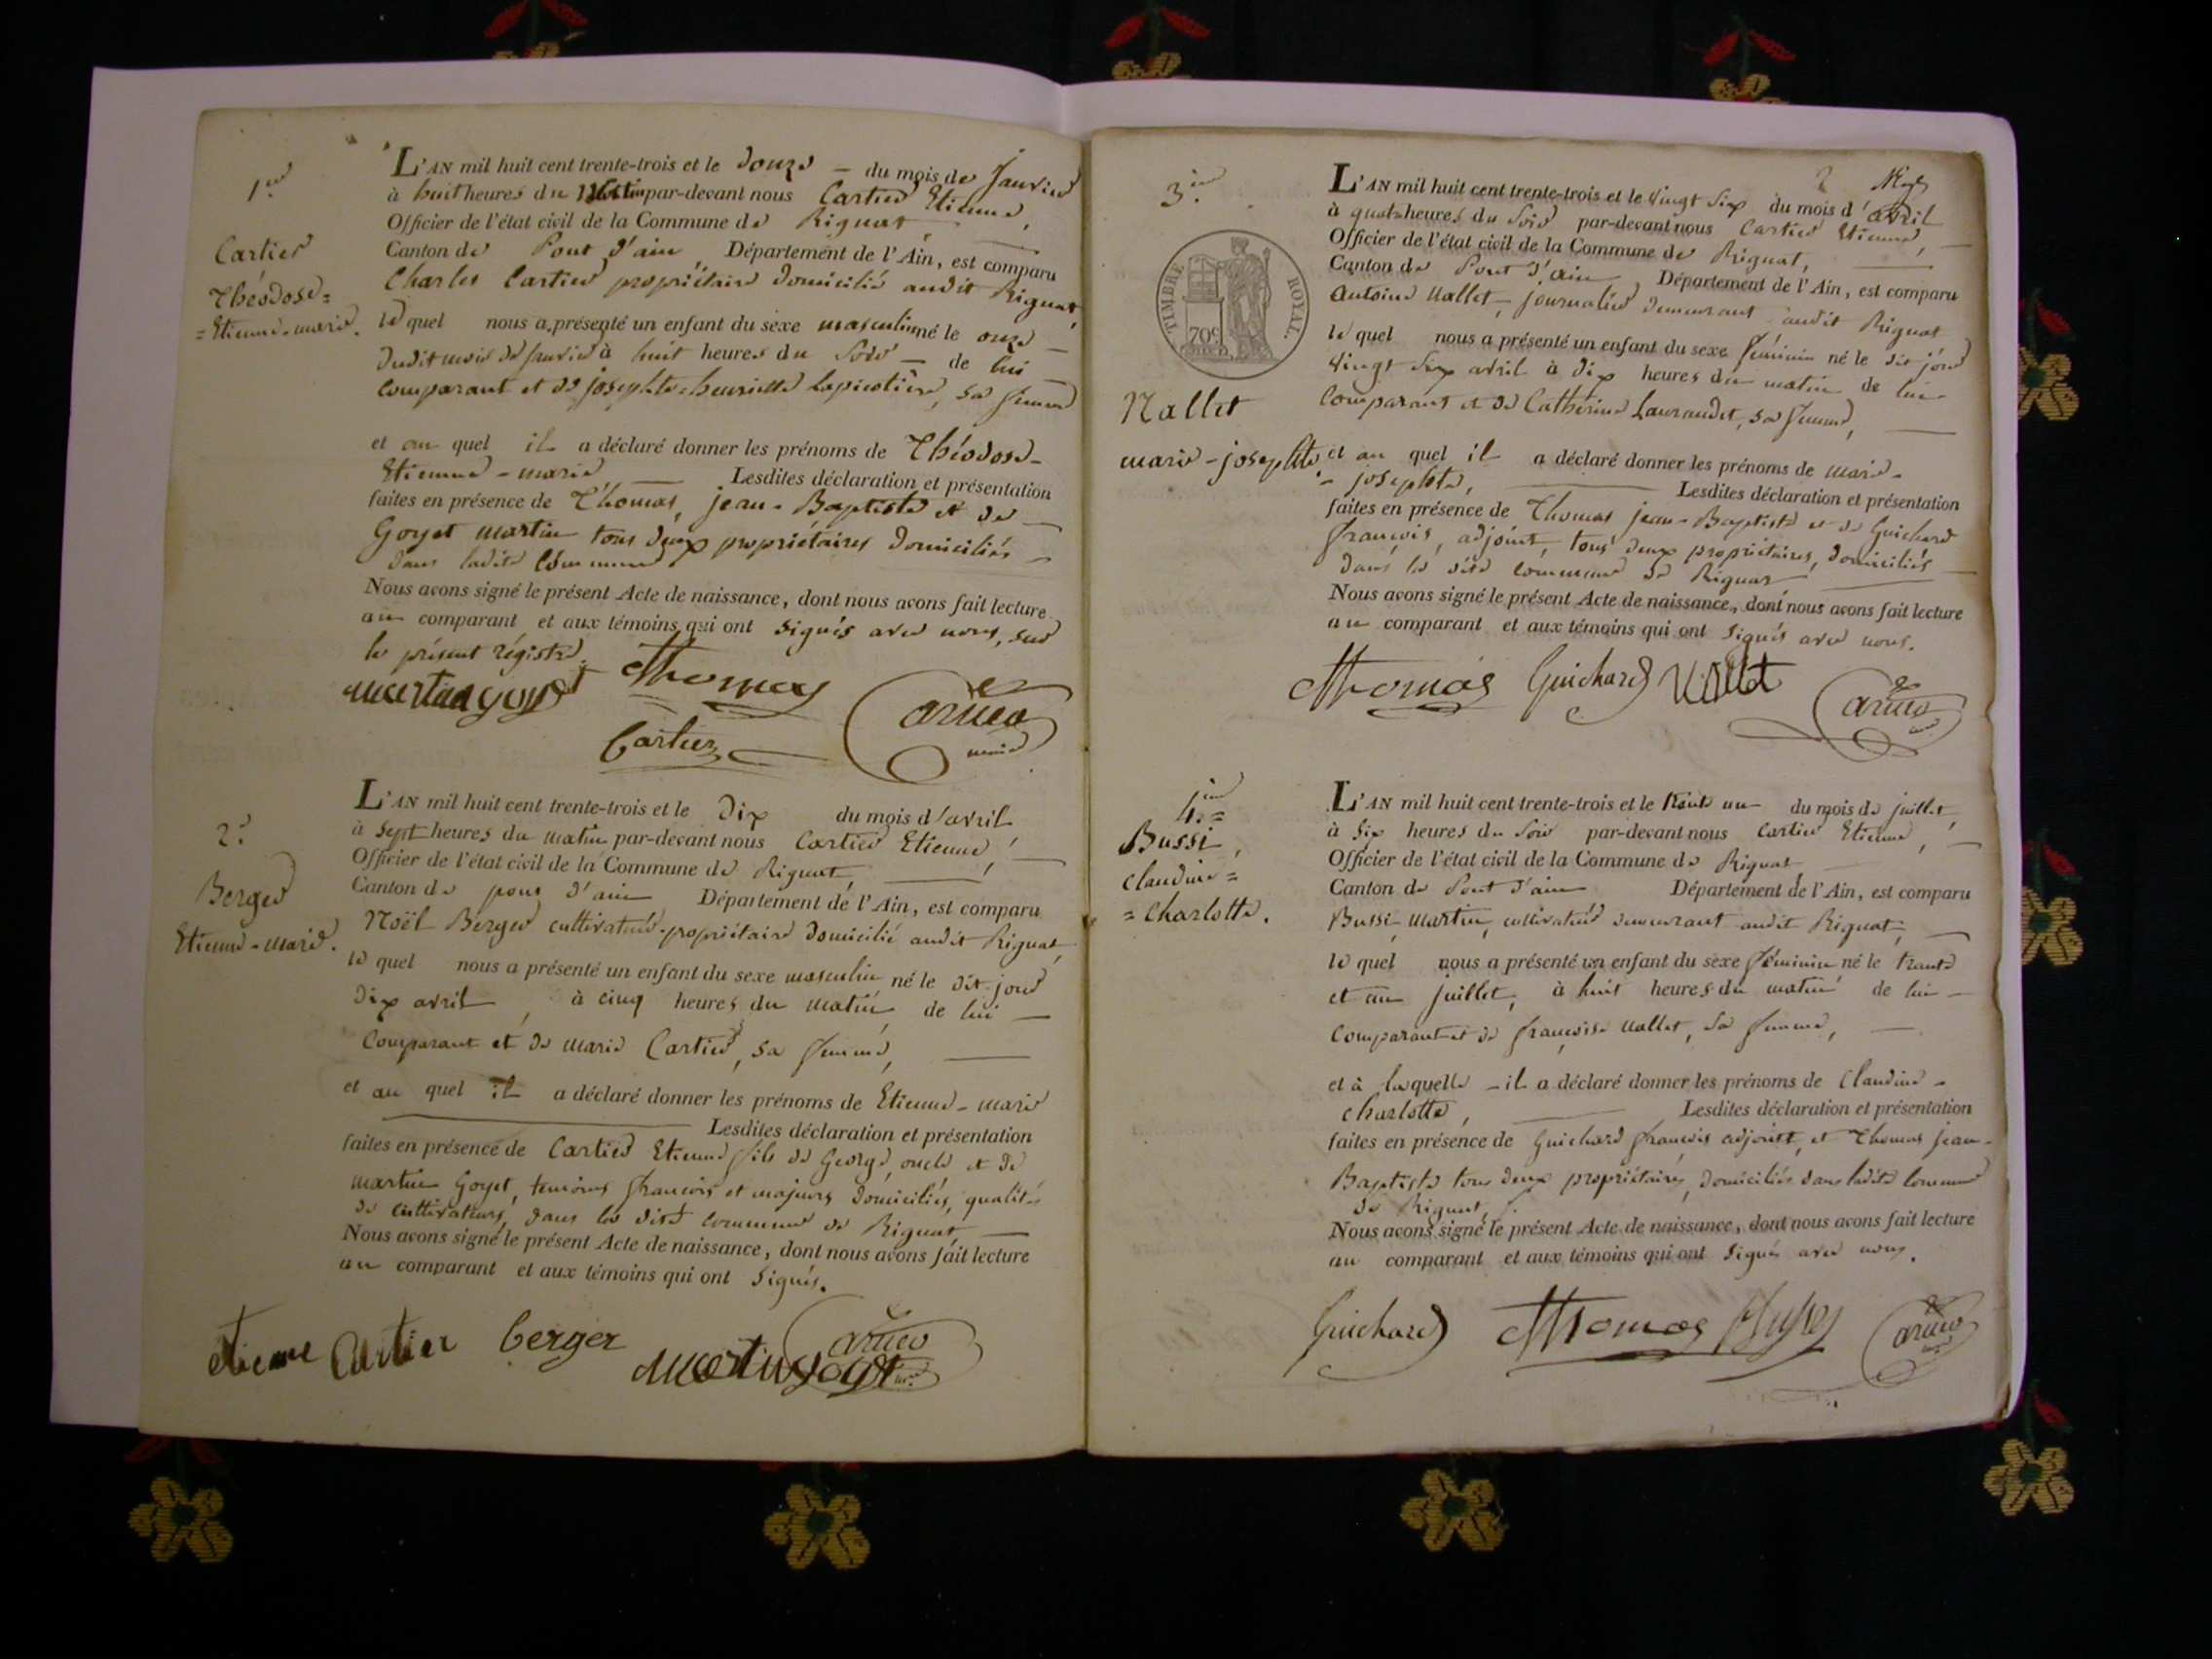 1.er
Cartier
Théodose=
=Etienne-marie.
L'AN mil huit cent trente-trois et le douze — du mois de Janvier
à huit heures du Matin par-devant nous Cartier Etienne,
Officier de l'état civil de la Commune de Rignat,
Canton de Pont d'ain, Département de l'Ain, est comparu
Charles Cartier propriétaire domicilié audit Rignat,
le quel nous a présenté un enfant du sexe masculin né le onze —
dudit mois de Janvier à huit heures du Soir — de lui
comparant et de josephte-henriette Lapicotière, sa femme
et au quel il a déclaré donner les prénoms de Théodose-
Etienne-marie, Lesdites déclaration et présentation
faites en présence de Thomas, jean-Baptiste et de —
Goyet martin tous deux propriétaires domiciliés —
dans ladite commune
Nous avons signé le présent Acte de naissance, dont nous avons fait lecture
au comparant et aux témoins qui ont signés avec nous, sur
le présent régistre.
martin goyet Thomas
Cartier
maire
2.e
Berger
Etienne-marie.
L'AN mil huit cent trente-trois et le Dix du mois d'avril
à sept heures du matin par-devant nous Cartier Etienne, —
Officier de l'état civil de la Commune de Rignat,
Canton de pont d'ain Département de l'Ain, est comparu
Noël Berger cultivateur-propriétaire domicilié audit Rignat,
le quel nous a présenté un enfant du sexe masculin né le dit jour
dix avril, à cinq heures du matin de lui —
Comparant et de marie Cartier, sa femme,
et au quel il a déclaré donner les prénoms de Etienne-marie
Lesdites déclaration et présentation
faites en présence de Cartier Etienne fils de George, oncle et de
martin Goyet, temoins français et majeurs domiciliés, qualités
de cultivateurs, dans la dite commune de Rignat,
Nous avons signé le présent Acte de naissance, dont nous avons fait lecture
au comparant et aux témoins qui ont signés.
etienne Cartier berger
martin goyet
3.me
TIMBRE ROYAL.
70c
Nallet
marie-josephte.
L'AN mil huit cent trente-trois et le vingt six du mois d'avril
à quatre heures du Soir par-devant nous Cartier Etienne,
Officier de l'état civil de la Commune de Rignat,
Canton de Pont d'ain Département de l'Ain, est comparu
Antoine Nallet, journalier demeurant audit Rignat
le quel nous a présenté un enfant du sexe féminin né le dit jour
vingt six avril à dix heures du matin de lui
Comparant et de Catherine Lauraudet, sa femme,
et au quel il a déclaré donner les prénoms de marie-
-josephte, Lesdites déclaration et présentation
faites en présence de Thomas jean-Baptiste et de Guichard
françois, adjoint, tous deux propriétaires, domiciliés
dans la dite commune de Rignat
Nous avons signé le présent Acte de naissance, dont nous avons fait lecture
au comparant et aux témoins qui ont signés avec nous.
Thomas Guichard Nallet
4.me
Bussi,
claudine=
=Charlotte.
L'AN mil huit cent trente-trois et le trente un du mois de juillet,
à six heures du Soir par-devant nous Cartier Etienne, —
Officier de l'état civil de la Commune de Rignat
Canton de Pont d'ain Département de l'Ain, est comparu
Bussi martin, cultivateur demeurant audit Rignat,
le quel nous a présenté un enfant du sexe féminin né le trente
et un juillet, à huit heures du matin de lui —
Comparant et de françoise Nallet, sa femme, —
et à laquelle — il a déclaré donner les prénoms de Claudine-
charlotte, Lesdites déclaration et présentation
faites en présence de Guichard françois adjoint, et Thomas jean-
Baptiste tous deux propriétaires, domiciliés dans ladite commune
de Rignat,
Nous avons signé le présent Acte de naissance, dont nous avons fait lecture
au comparant et aux témoins qui ont signés avec nous.
Guichard Thomas